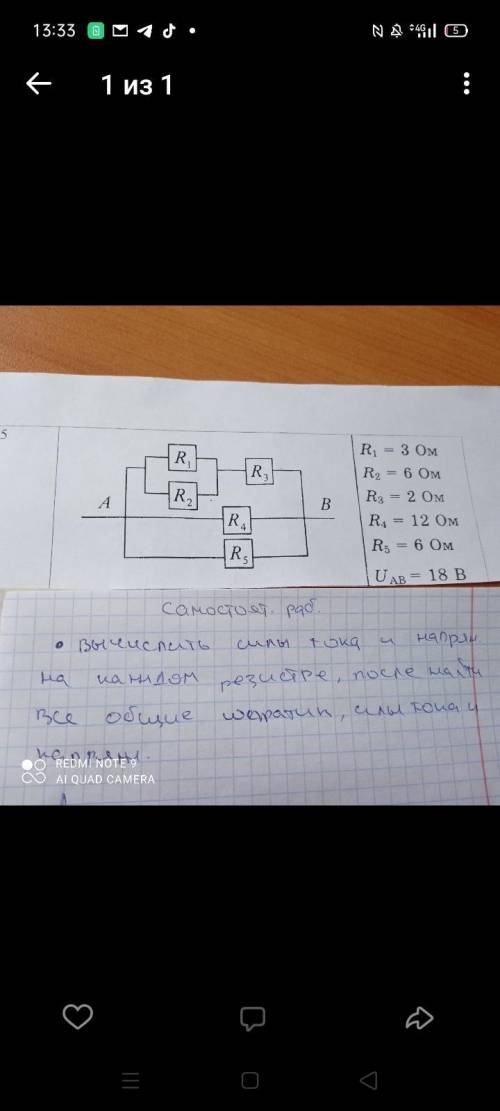 13:33 4G 5
1 из 1
5
R₁
R₃
A R₂ B
R₄
R₅
R₁ = 3 Ом
R₂ = 6 Ом
R₃ = 2 Ом
R₄ = 12 Ом
R₅ = 6 Ом
U_AB = 18 В
Самостоят. раб.
• Вычислить силы тока и напряж
на каждом резистре, после найти
все общие , силы тока и
напряж.
REDMI NOTE 9
AI QUAD CAMERA